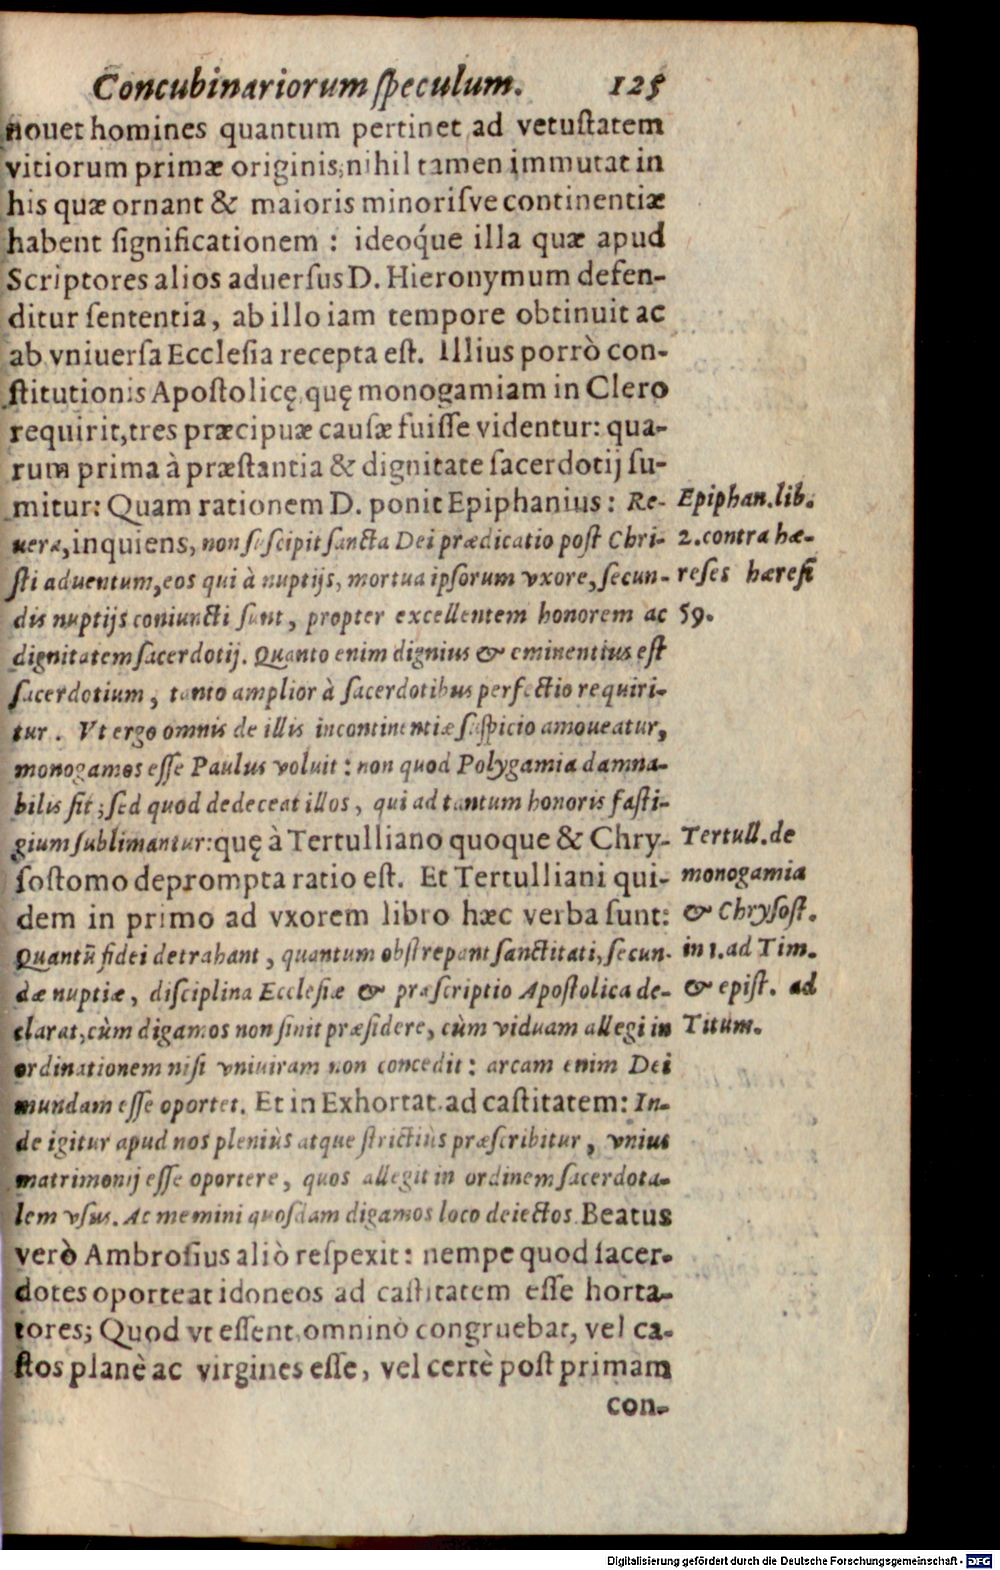 Concubinariorum ſpeculum. 125
nouet homines quantum pertinet ad vetuſtatem
vitiorum primæ originis, nihil tamen immutat in
his quæ ornant & maioris minoriſve continentiæ
habent ſignificationem : ideoq́ue illa quæ apud
Scriptores alios aduerſus D. Hieronymum defen-
ditur ſententia, ab illo iam tempore obtinuit ac
ab vniuerſa Eccleſia recepta eſt. Illius porrò con-
ſtitutionis Apoſtolicę, quę monogamiam in Clero
requirit, tres præcipuæ cauſæ fuiſſe videntur: qua-
rum prima à præſtantia & dignitate ſacerdotij ſu-
mitur: Quam rationem D. ponit Epiphanius : Re-
uera, inquiens, non ſuſcipit ſancta Dei prædicatio poſt Chri-
ſti aduentum, eos qui à nuptijs, mortua ipſorum vxore, ſecun-
dis nuptijs coniuncti ſunt, propter excellentem honorem ac
dignitatem ſacerdotij. Quanto enim dignius & eminentius eſt
ſacerdotium, tanto amplior à ſacerdotibus perfectio requiri-
tur. Vt ergo omnis de illis incontinentiæ ſuſpicio amoueatur,
monogamos eſſe Paulus voluit : non quod Polygamia damna-
bilis ſit; ſed quod dedeceat illos, qui ad tantum honoris faſti-
gium ſublimantur: quę à Tertulliano quoque & Chry-
ſoſtomo deprompta ratio eſt. Et Tertulliani qui-
dem in primo ad vxorem libro hæc verba ſunt:
Quantũ fidei detrahant, quantum obſtrepant ſanctitati, ſecun-
dæ nuptiæ, diſciplina Eccleſiæ & præſcriptio Apoſtolica de-
clarat, cùm digamos non ſinit præſidere, cùm viduam allegi in
ordinationem niſi vniuiram non concedit : arcam enim Dei
mundam eſſe oportet. Et in Exhortat. ad caſtitatem: In-
de igitur apud nos pleniùs atque ſtrictiùs præſcribitur, vnius
matrimonij eſſe oportere, quos allegit in ordinem ſacerdota-
lem vſus. Ac memini quoſdam digamos loco deiectos. Beatus
verò Ambroſius aliò reſpexit : nempe quod ſacer-
dotes oporteat idoneos ad caſtitatem eſſe horta-
tores; Quod vt eſſent, omninò congruebat, vel ca-
ſtos planè ac virgines eſſe, vel certè poſt primam
con-
Epiphan. lib.
2. contra hæ-
reſes hæreſi
59.
Tertull. de
monogamia
& Chryſoſt.
in 1. ad Tim.
& epiſt. ad
Titum.
Digitalisierung gefördert durch die Deutsche Forschungsgemeinschaft - DFG